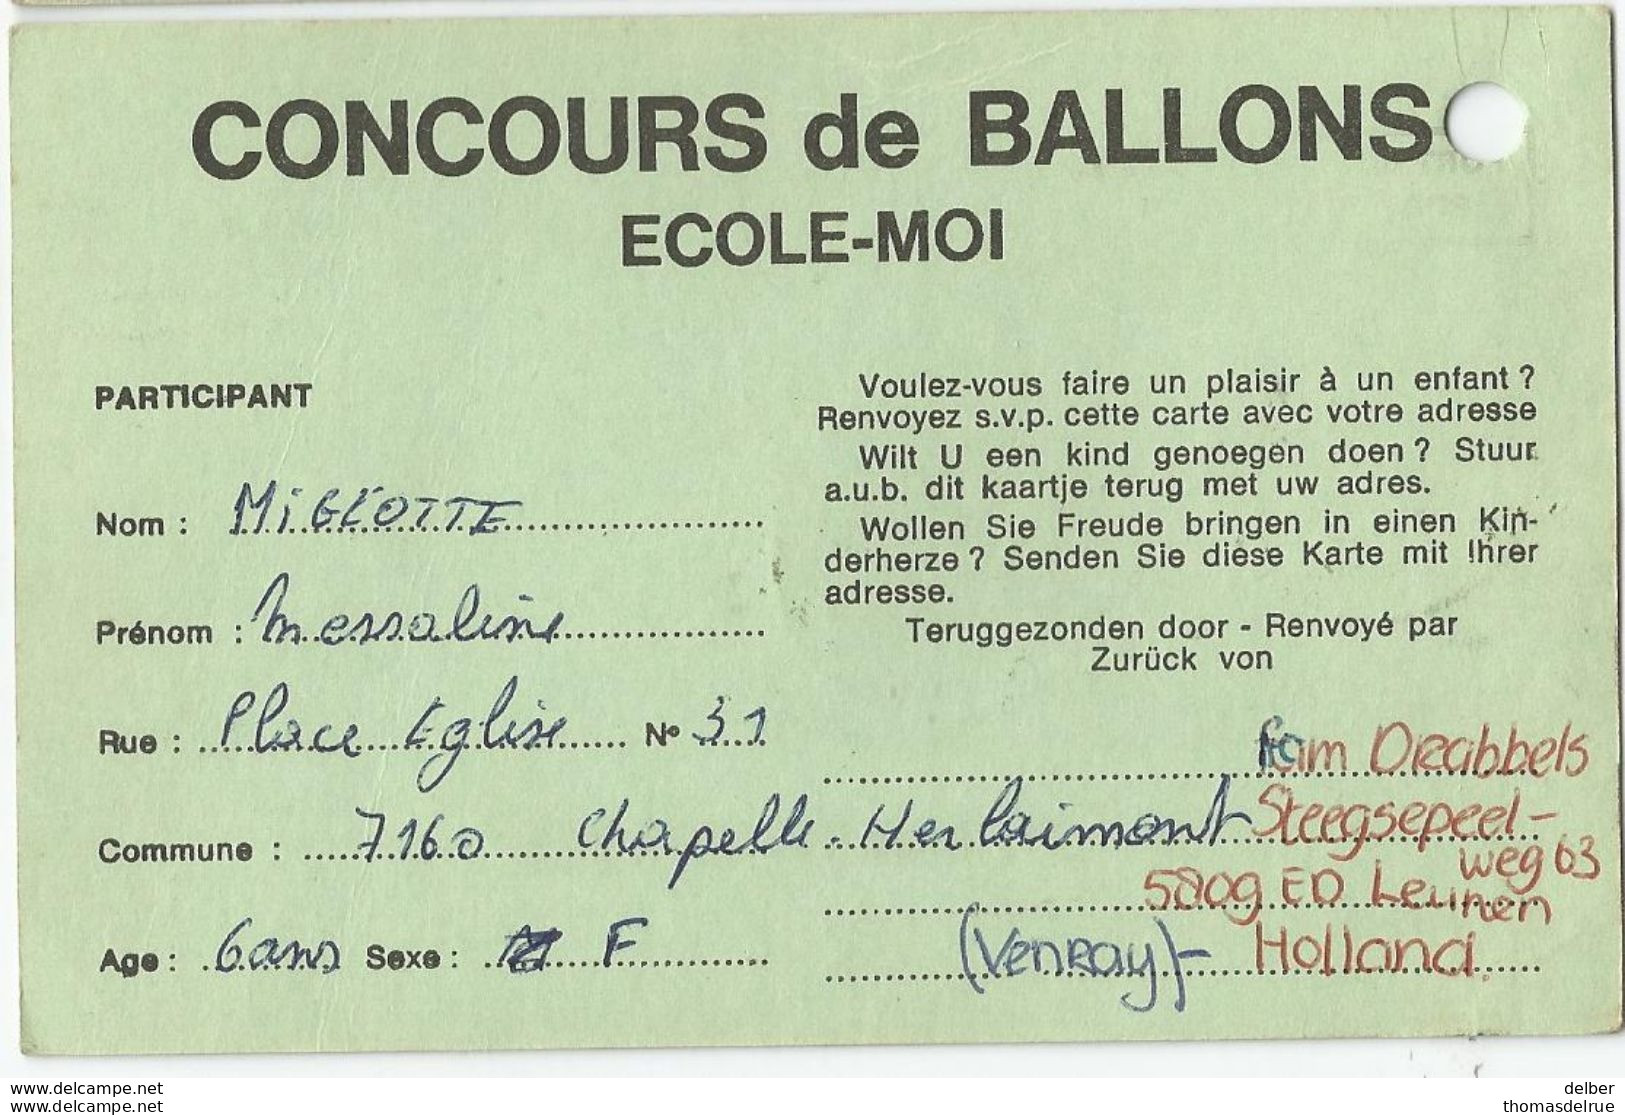 CONCOURS de BALLONS
ECOLE-MOI
PARTICIPANT
Nom : MiGLOTTE
Prénom : Messaline
Rue : Place Eglise N° 31
Commune : 7160 Chapelle-Herlaimont
Age : 6 ans Sexe : F
Voulez-vous faire un plaisir à un enfant ?
Renvoyez s.v.p. cette carte avec votre adresse
Wilt U een kind genoegen doen ? Stuur
a.u.b. dit kaartje terug met uw adres.
Wollen Sie Freude bringen in einen Kin-
derherze ? Senden Sie diese Karte mit Ihrer
adresse.
Teruggezonden door - Renvoyé par
Zurück von
fam Drabbels
Steegsepeel-
weg 63
5809 ED Leunen
(Venray)- Holland.
www.delcampe.net
www.delcampe.net
delber
thomasdelrue